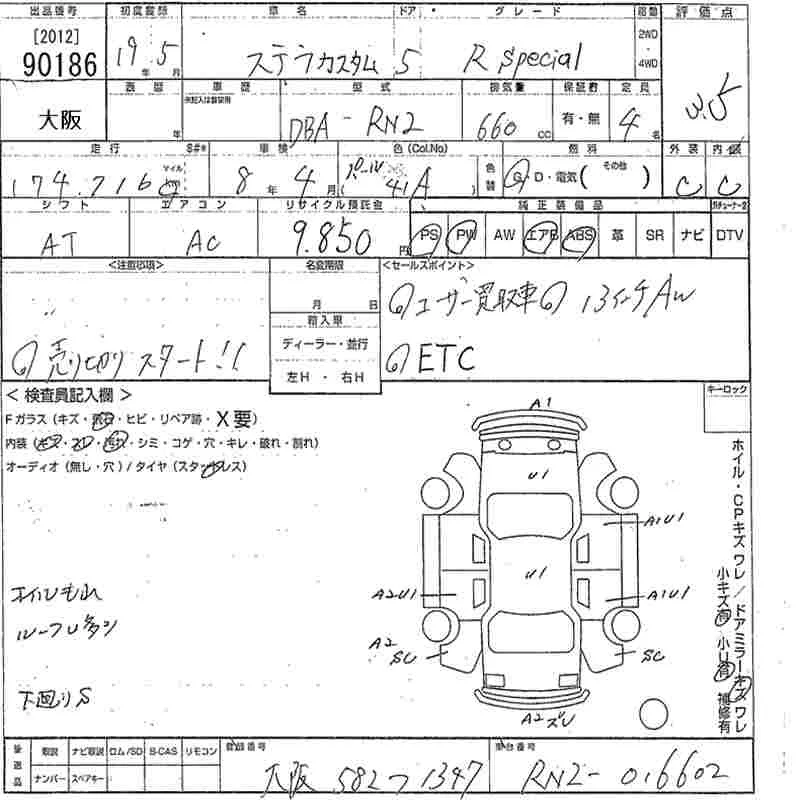 出品番号 初度登録 車名 ドア グレード 駆動 評価点
[2012]
90186 19年 5月 ステラカスタム 5 R Special 2WD・4WD 3.5
車歴 車歴 型式 排気量 保証書 定員
大阪 年 未記入は自家用 DBA - RN2 660 CC 有・無 4名
走行 S#* 車検 色(Col.No) 色替 燃料 外装 内装
174,716 マイル km 8年 4月 パール (41A) G・D・電気( その他 ) C C
シフト エアコン リサイクル預託金 純正装備品 地デジチューナー
AT AC 9.850円 PS PW AW エアB ABS 革 SR ナビ DTV
<注意事項> 名変期限 <セールスポイント>
月 日
◎ユーザー買取車◎ 13インチAW
輸入車
ディーラー・並行
◎売り切りスタート!!
◎ETC
左H・右H
<検査員記入欄> キーロック
Fガラス(キズ・飛石・ヒビ・リペア跡・X要)
内装(キズ・スレ・汚れ・シミ・コゲ・穴・キレ・破れ・割れ)
オーディオ(無し・穴)/タイヤ(スタッドレス)
A1
U1
A1U1
U1
A2U1
A1U1
A2
SC
SC
A2ズレ
オイルもれ
ルーフU多数
下廻りS
ホイル・CPキズ ワレ/ドアミラーキズ ワレ
小キズ有 小U有 補修有
後送品 取説 ナビ取説 ロム/SD B-CAS リモコン 登録番号 車台番号
ナンバー スペアキー 大阪 582 フ 1347 RN2-016602